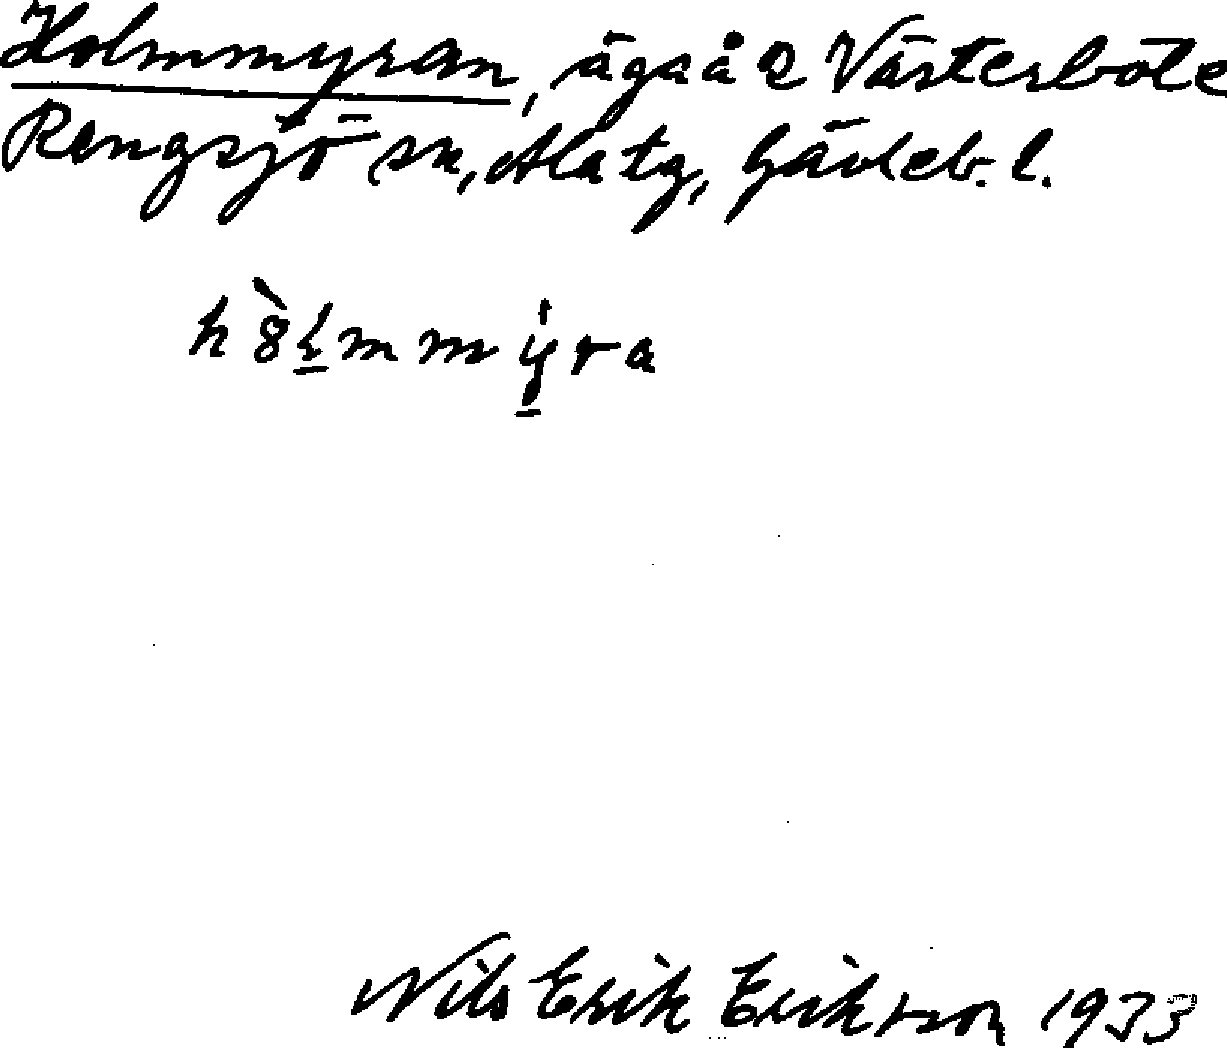 Holmmyran, ägaå Västerböle
Rengsjö sn, Ala tg, Gävleb. l.
hò8lmmyra
Nils Erik Erikson 1933